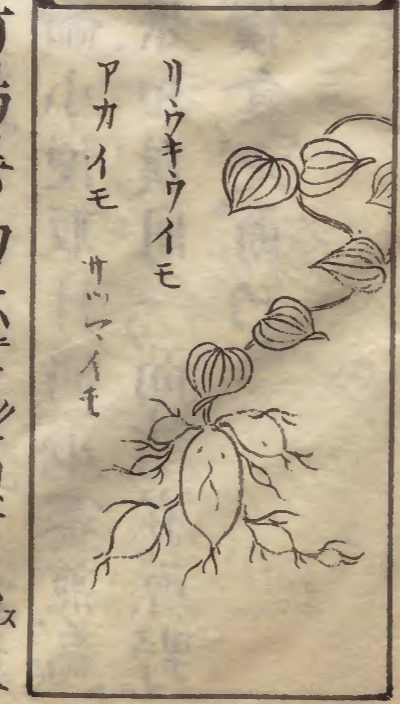 リウキウイモ
アカイモ サツマイモ